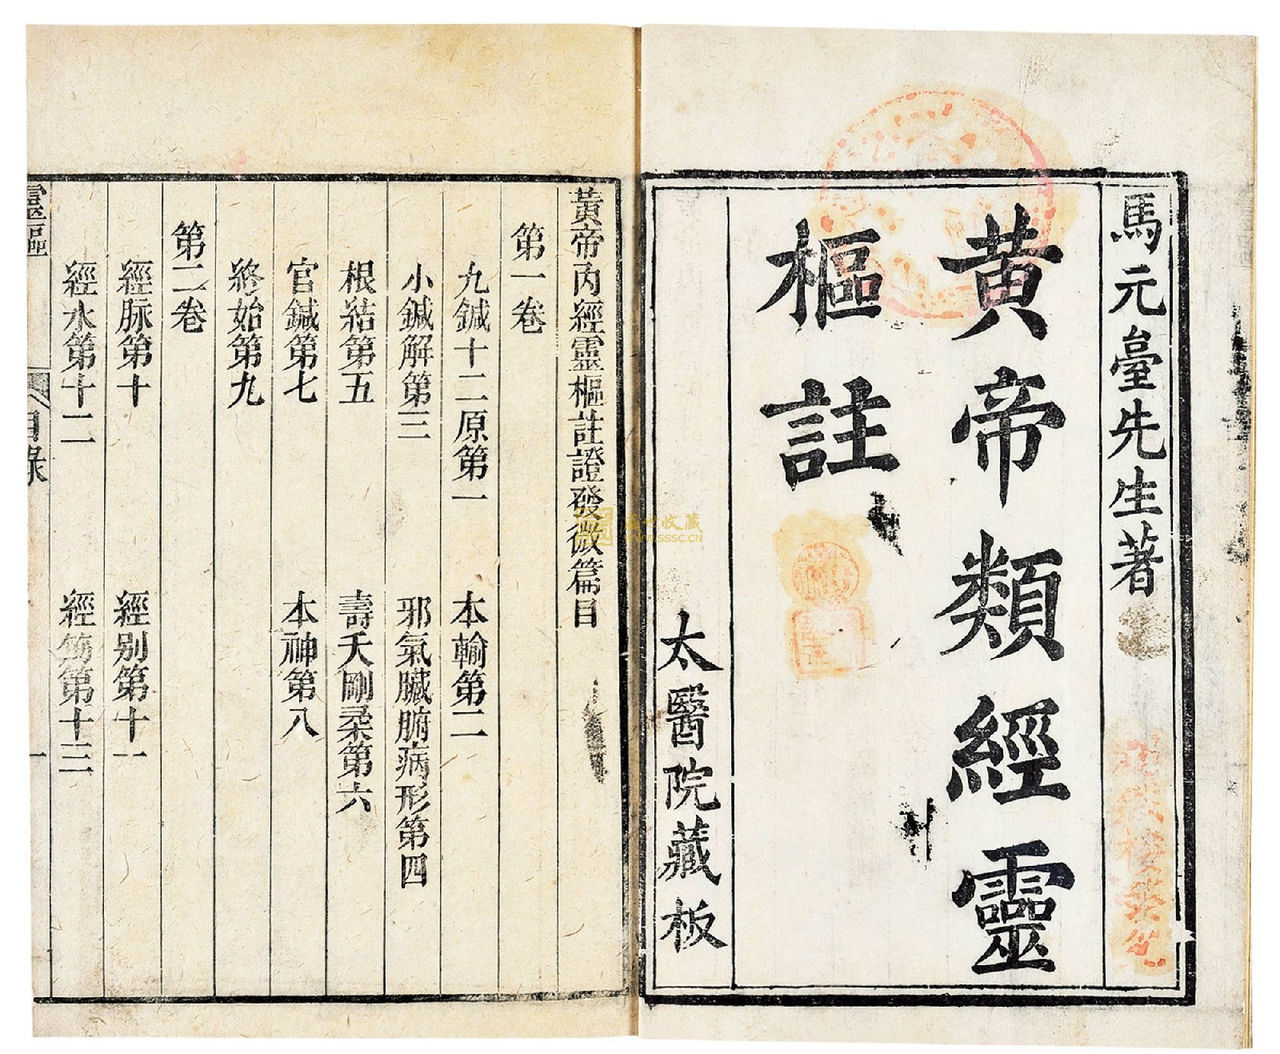 馬元臺先生著
黄帝類經靈
樞註
太醫院藏板
黃帝內經靈樞註證發微篇目
第一卷
九鍼十二原第一 本輸第二
小鍼解第三 邪氣臟腑病形第四
根結第五 壽夭剛柔第六
官鍼第七 本神第八
終始第九
第二卷
經脉第十 經别第十一
經水第十二 經筋第十三
靈樞
目錄
一
收藏
WWW.SSSC.CN